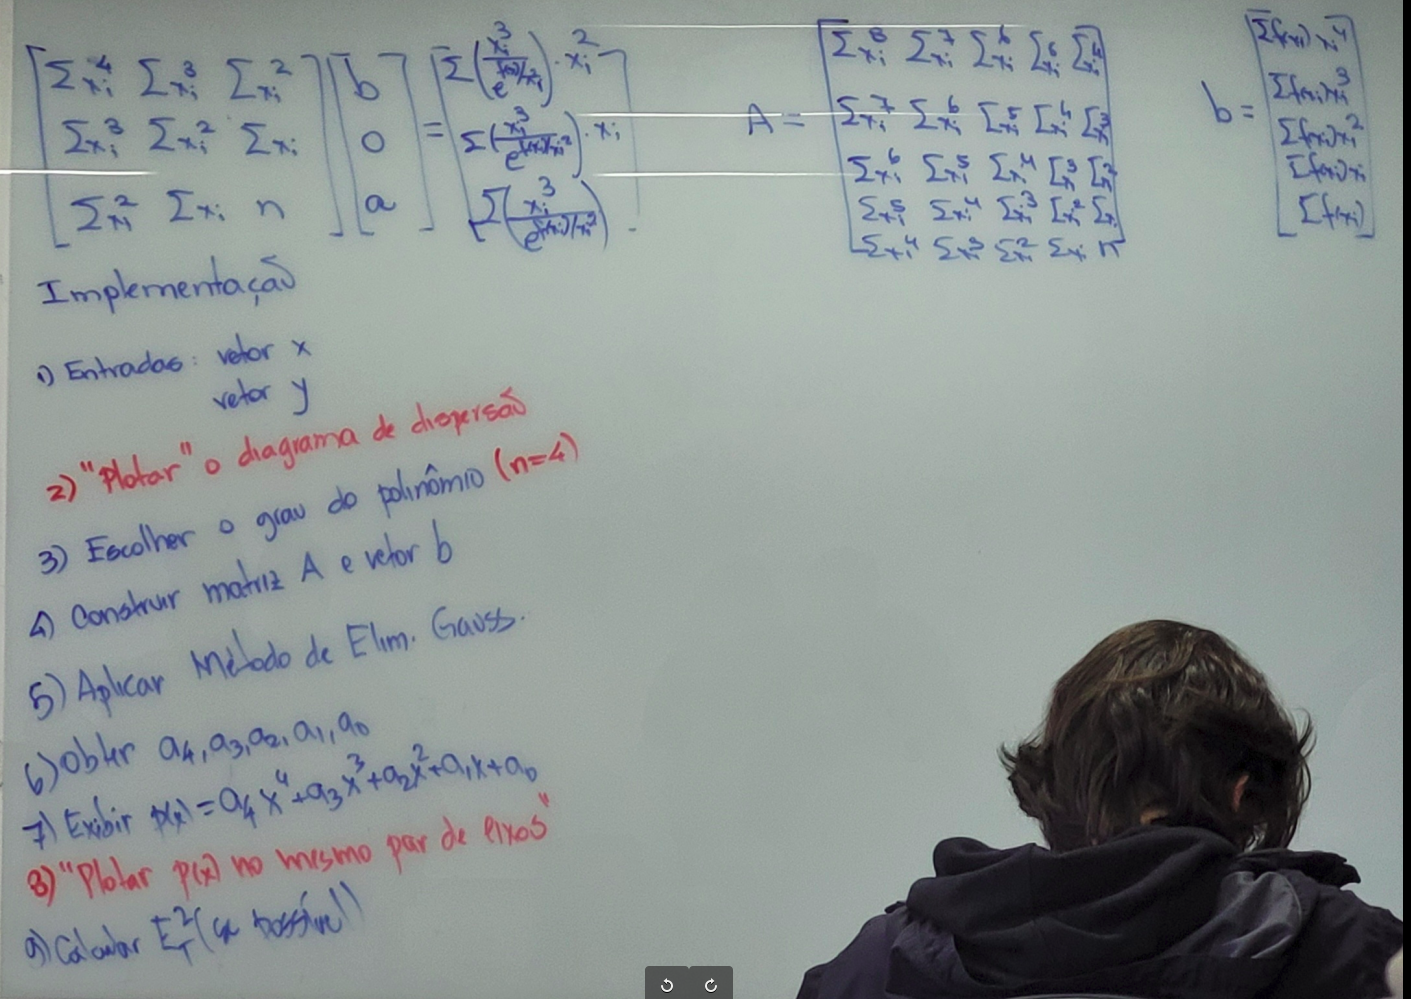 [Σxi^4 Σxi^3 Σxi^2] [b] = [Σ(xi^3/e^(f(xi)/xi^2)).xi^2]
[Σxi^3 Σxi^2 Σxi] [0] [Σ(xi^3/e^(f(xi)/xi^2)).xi]
[Σxi^2 Σxi n] [a] [Σ(xi^3/e^(f(xi)/xi^2))]
A = [Σxi^8 Σxi^7 Σxi^6 Σxi^5 Σxi^4]
[Σxi^7 Σxi^6 Σxi^5 Σxi^4 Σxi^3]
[Σxi^6 Σxi^5 Σxi^4 Σxi^3 Σxi^2]
[Σxi^5 Σxi^4 Σxi^3 Σxi^2 Σxi]
[Σxi^4 Σxi^3 Σxi^2 Σxi n]
b = [Σf(xi)xi^4]
[Σf(xi)xi^3]
[Σf(xi)xi^2]
[Σf(xi)xi]
[Σf(xi)]
Implementação
1) Entradas: vetor x
vetor y
2) "Plotar" o diagrama de dispersão
3) Escolher o grau do polinômio (n=4)
4) Construir matriz A e vetor b
5) Aplicar Método de Elim. Gauss.
6) Obter a4, a3, a2, a1, a0
7) Exibir p(x) = a4x^4+a3x^3+a2x^2+a1x+a0
8) "Plotar p(x) no mesmo par de eixos"
9) Calcular E_T^2 (se possível)